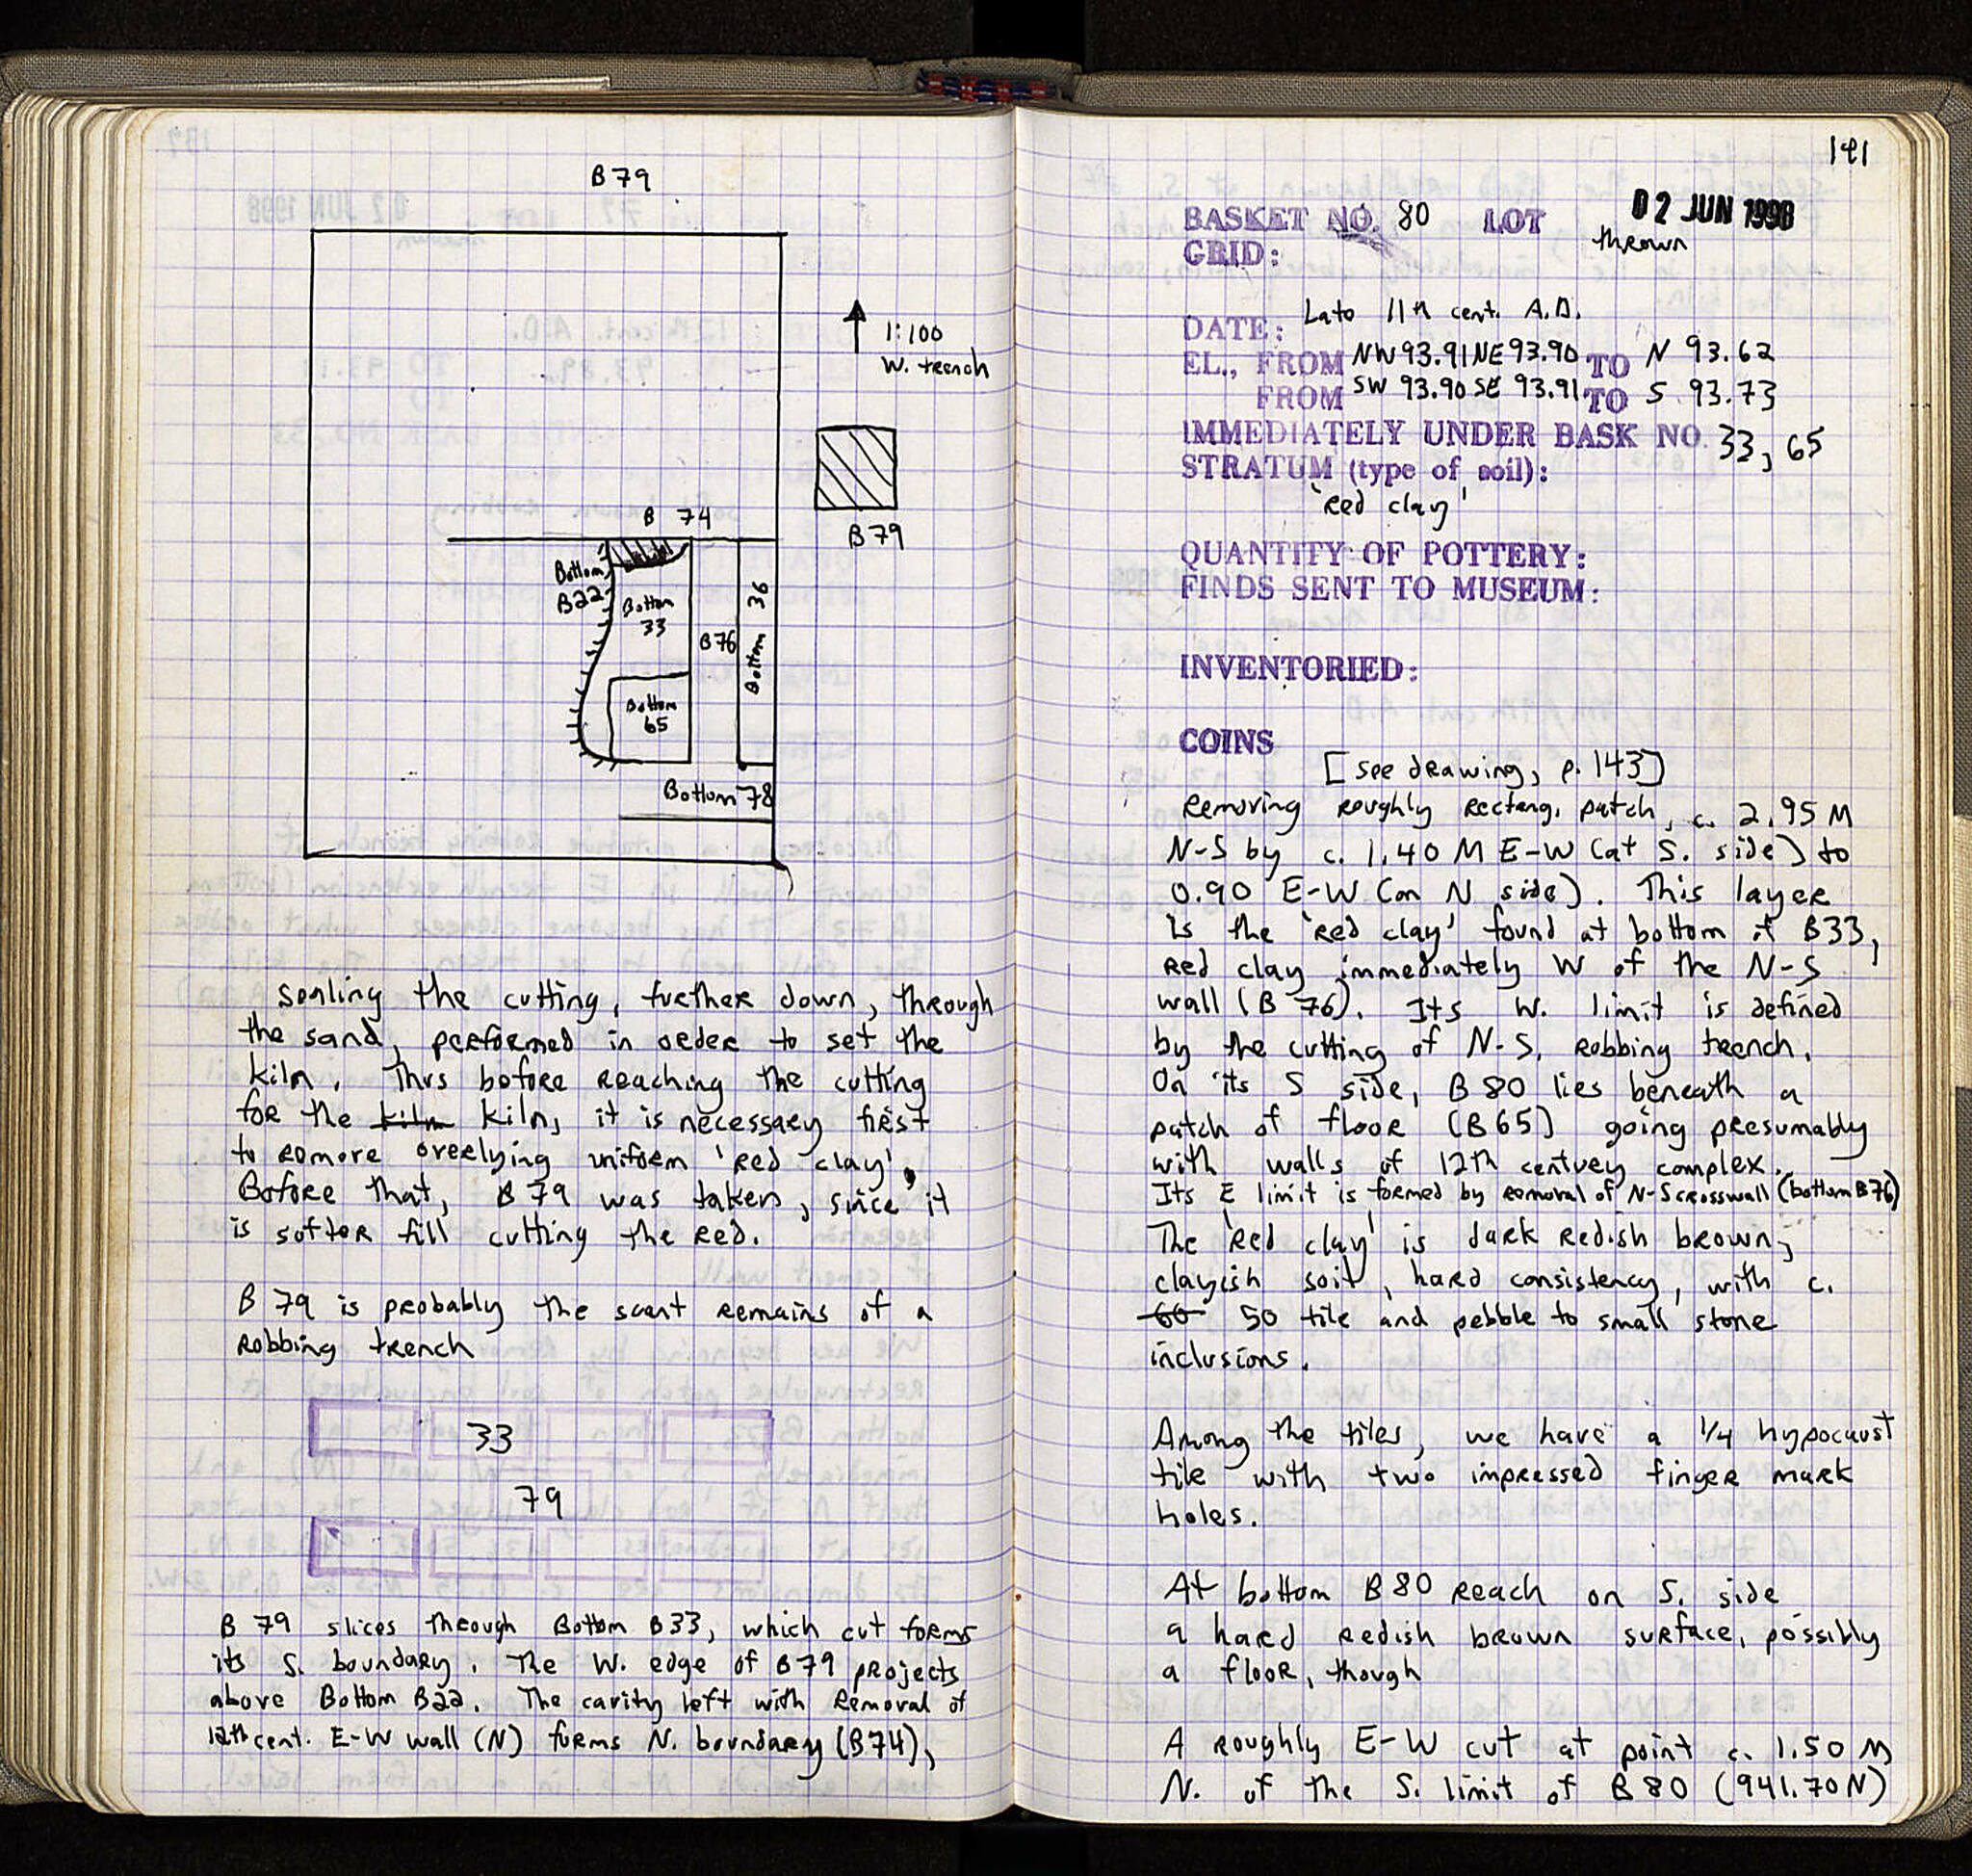 B 79
1:100
W. trench
B 79
B 74
Bottom
B22
Bottom
33
B76
Bottom 36
Bottom
65
Bottom 78
sealing the cutting, further down, through
the sand, performed in order to set the
kiln. Thus before reaching the cutting
for the kiln kiln, it is necessary first
to remove overlying uniform 'red clay'.
Before that, B 79 was taken, since it
is softer fill cutting the red.
B 79 is probably the scant remains of a
robbing trench
33
79
B 79 slices through Bottom B33, which cut forms
its S. boundary. The W. edge of B79 projects
above Bottom B22. The cavity left with removal of
12th cent. E-W wall (N) forms N. boundary (B74),
141
02 JUN 1998
BASKET NO. 80 LOT
thrown
GRID:
Late 11th cent. A.D.
DATE:
EL., FROM NW 93.91 NE 93.90 TO N 93.62
FROM SW 93.90 SE 93.91 TO S 93.73
IMMEDIATELY UNDER BASK NO. 33, 65
STRATUM (type of soil):
'red clay'
QUANTITY OF POTTERY:
FINDS SENT TO MUSEUM:
INVENTORIED:
COINS
[see drawing, p. 143]
Removing roughly rectang. patch, c. 2.95 M
N-S by c. 1.40 M E-W (at S. side) to
0.90 E-W (on N side). This layer
is the 'red clay' found at bottom of B33,
red clay immediately W of the N-S
wall (B 76). Its W. limit is defined
by the cutting of N-S. robbing trench.
On its S side, B 80 lies beneath a
patch of floor (B65) going presumably
with walls of 12th century complex.
Its E limit is formed by removal of N-S crosswall (bottom B76)
The 'red clay' is dark redish brown,
clayish soil, hard consistency, with c.
60 50 tile and pebble to small stone
inclusions.
Among the tiles, we have a 1/4 hypocaust
tile with two impressed finger mark
holes.
At bottom B 80 reach on S. side
a hard redish brown surface, possibly
a floor, though
A roughly E-W cut at point c. 1.50 M
N. of the S. limit of B 80 (941.70 N)